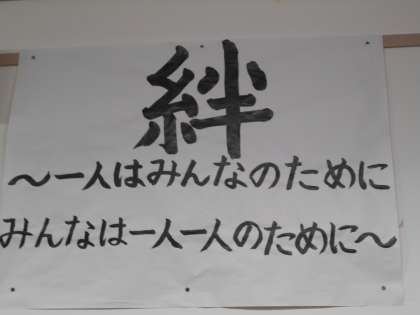 絆
～一人はみんなのために
みんなは一人一人のために～